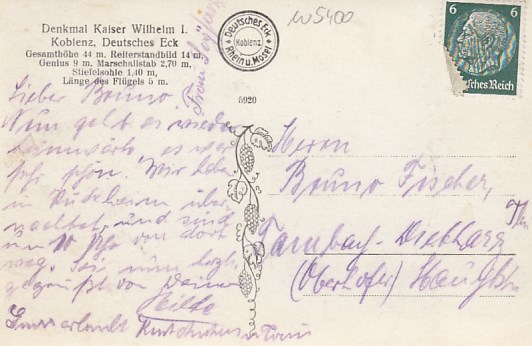 Denkmal Kaiser Wilhelm I.
Koblenz, Deutsches Eck
Gesamthöhe 44 m. Reiterstandbild 14 m.
Genius 9 m. Marschallstab 2,70 m.
Stiefelsohle 1,40 m,
Länge des Flügels 5 m.
Deutsches Eck
Koblenz
Rhein u. Mosel
W5400
6 6
Deutsches Reich
5920
Lieber Bruno!
Nun geht es wieder
heimwärts, es war
sehr schön. Wir haben
in Rüdesheim über-
nachtet, und sind
um 10 Uhr von dort
weg. Sei nun herzl.
gegrüßt von Deiner
Hilde
Herrn
Bruno Fischer,
Tambach-Dietharz
Th.
(Oberhofer) Hauptstr.